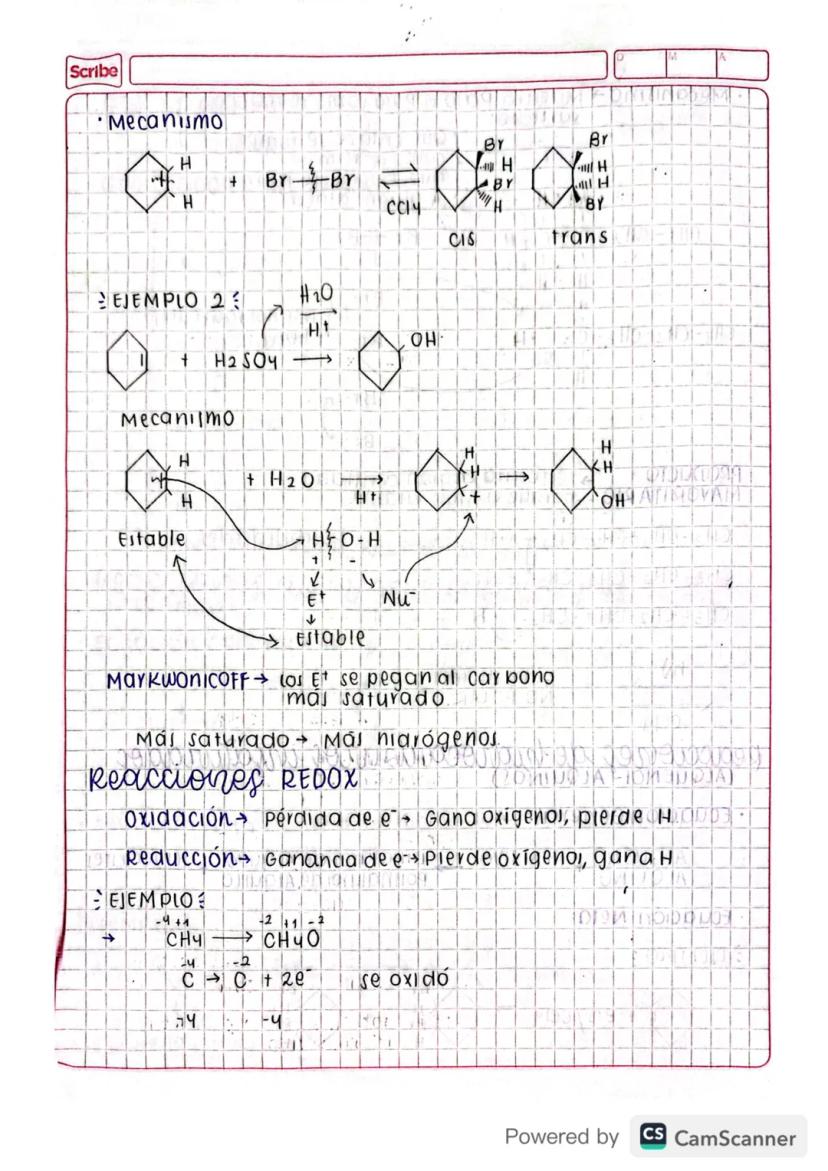 Scribe
D M A
· Mecanismo
H H + Br Br CCl4 Br H Br H Br H H Br
cis trans
EJEMPLO 2
H2O
H+
+ H2SO4 → OH
Mecanismo
H H + H2O → H+ H H + → H H OH
Estable H O-H
+ -
E+ Nu-
Estable
Markwonicoff → los E+ se pegan al carbono
más saturado
Más saturado → Más hidrógenos
Reacciones REDOX
Oxidación → Pérdida de e- → Gana oxígenos, pierde H
Reducción → Ganancia de e- → Pierde oxígenos, gana H
EJEMPLO
-4 +1 -2 +1 -2
→ CH4 → CH4O
-4 -2
C → C + 2e- se oxidó
-4 -4
Powered by CS CamScanner